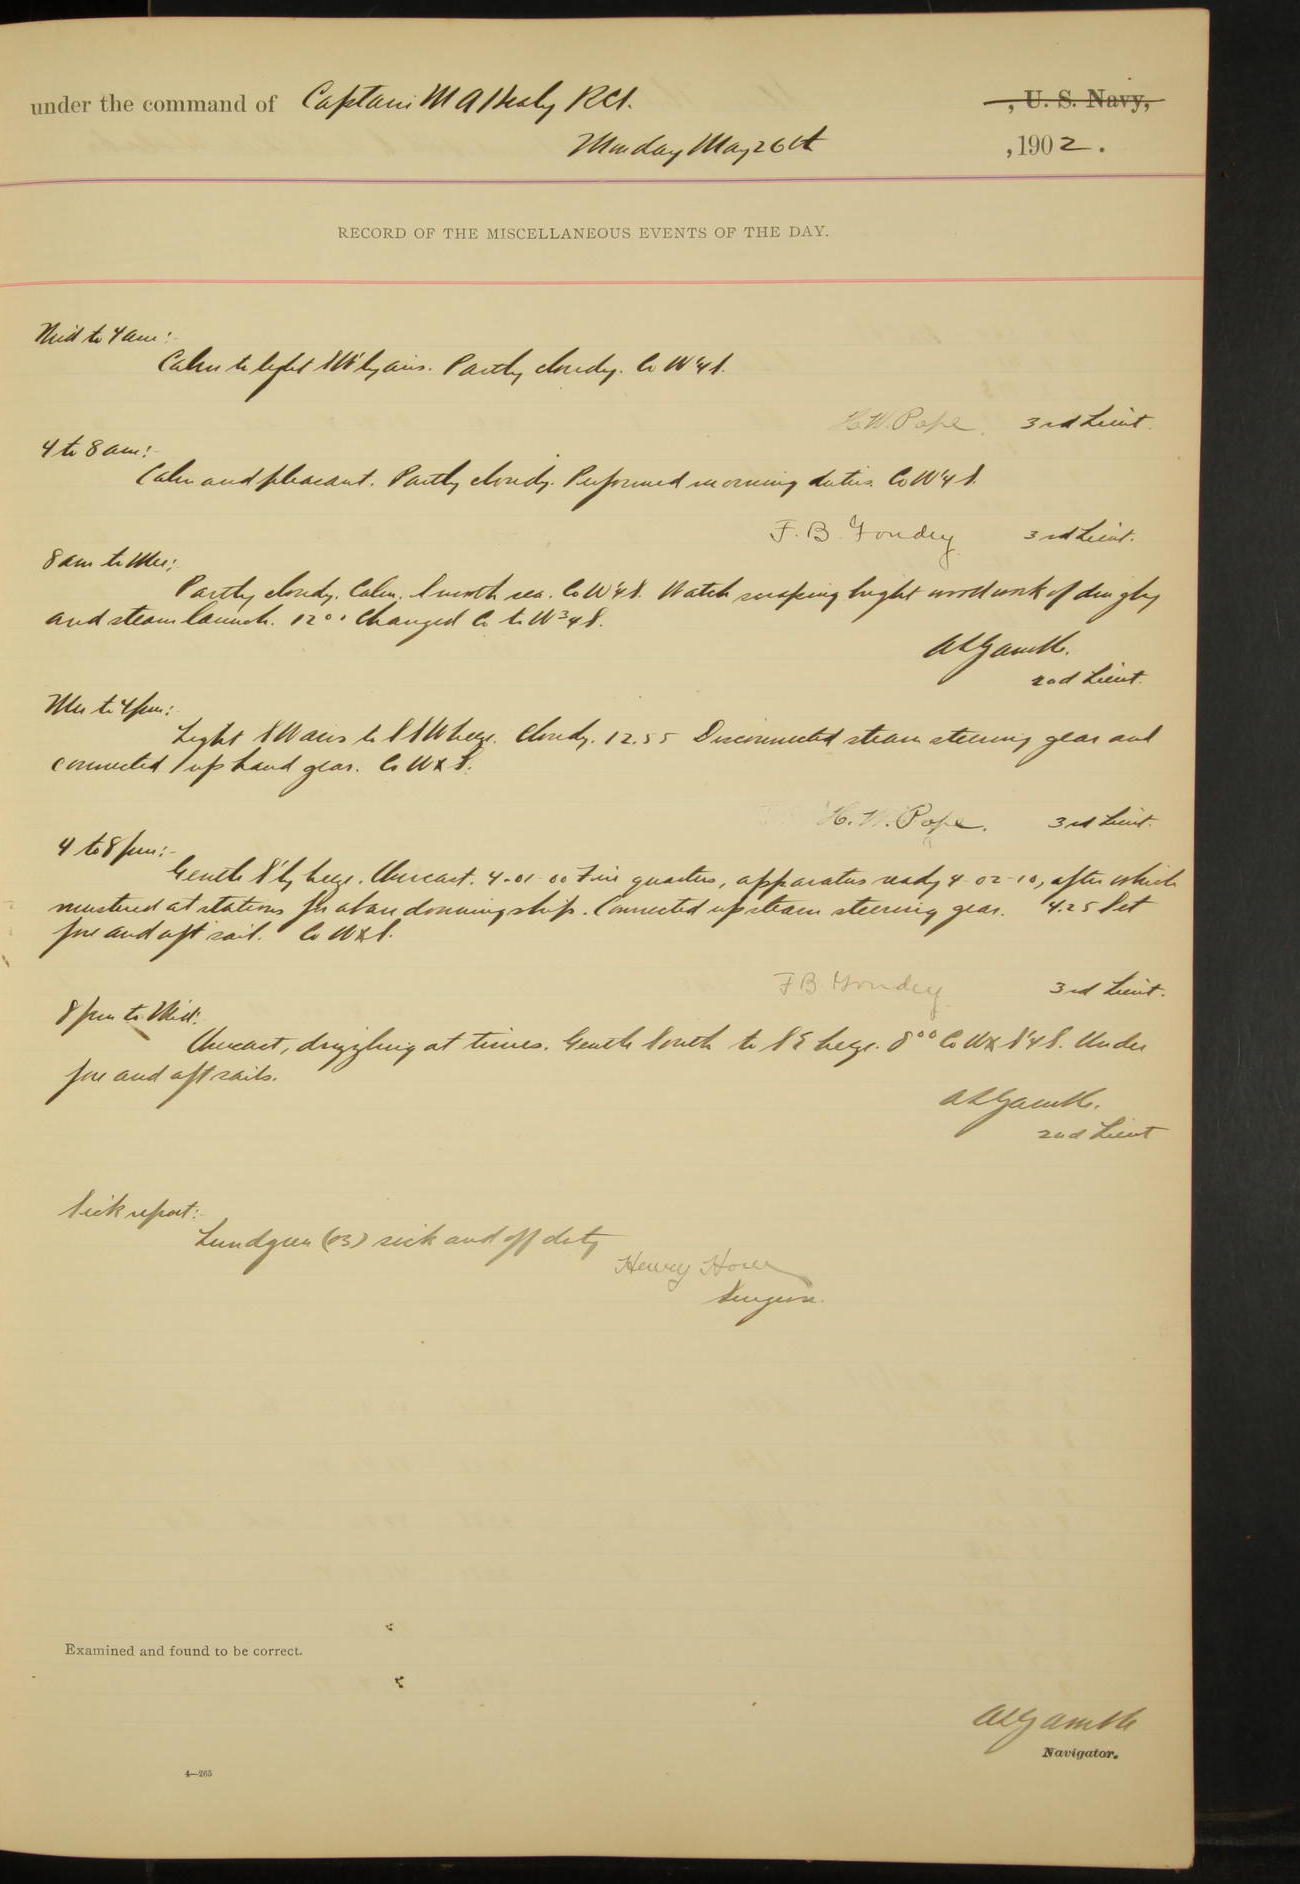 under the command of Captain M A Healy RCS. , U. S. Navy,
Monday May 26th , 1902.
RECORD OF THE MISCELLANEOUS EVENTS OF THE DAY.
Mid to 4 am:-
Calm to light SW'ly airs. Partly cloudy. Co W¼S.
H.W. Pope. 3rd Lieut.
4 to 8 am:-
Calm and pleasant. Partly cloudy. Performed morning duties. Co W¼S.
F. B. Goudey 3rd Lieut.
8 am to Mer:-
Partly cloudy. Calm. Smooth sea. Co W¼S. Watch scraping bright woodwork of dinghy
and steam launch. 12⁰⁰ Changed Co to W¾S.
A L Gamble.
2nd Lieut.
Mer to 4 pm:-
Light SW airs to SSW breeze. Cloudy. 12.55 Disconnected steam steering gear and
connected up hand gear. Co WxS.
H. W. Pope. 3rd Lieut.
4 to 8 pm:-
Gentle S'ly breeze. Overcast. 4-01-00 Fire quarters, apparatus ready 4-02-10, after which
mustered at stations for abandoning ship. Connected up steam steering gear. 4.25 Set
fore and aft sail. Co WxS.
F B Goudey 3rd Lieut.
8 pm to Mid:
Overcast, drizzling at times. Gentle South to SE breeze. 8⁰⁰ Co WxS¼S. Under
fore and aft sails.
A L Gamble.
2nd Lieut
Sick report:-
Lundgren (OS) sick and off duty
Henry Horn
Surgeon.
Examined and found to be correct.
A L Gamble
Navigator.
4—265